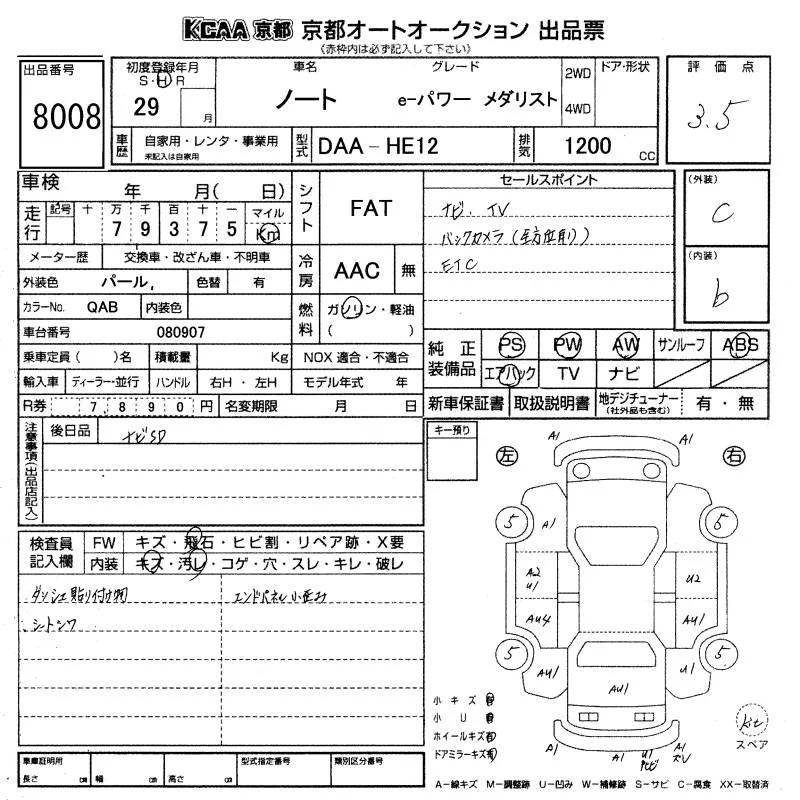 KCAA 京都 京都オートオークション 出品票
(赤枠内は必ず記入して下さい)
出品番号
8008
初度登録年月
S・H・R
29
月
車名
グレード
ノート e-パワー メダリスト
2WD
4WD
ドア・形状
評価点
3.5
車歴
自家用・レンタ・事業用
未記入は自家用
型式
DAA-HE12
排気
1200 cc
車検 年 月( 日)
走行
記号 十 万 千 百 十 一 マイル
7 9 3 7 5 Km
メーター歴 交換車・改ざん車・不明車
外装色 パール, 色替 有
カラーNo. QAB 内装色
車台番号 080907
乗車定員( )名 積載量 Kg
輸入車 ディーラー・並行 ハンドル 右H・左H
R券 7,890円 名変期限 月 日
シフト FAT
冷房 AAC 無
燃料 ガソリン・軽油
( )
NOX 適合・不適合
モデル年式 年
セールスポイント
ナビ. TV
バックカメラ(全方位付)
ETC
(外装)
C
(内装)
b
純正装備品
PS PW AW サンルーフ ABS
エアバック TV ナビ
新車保証書 取扱説明書 地デジチューナー(社外品も含む) 有・無
注意事項(出品店記入)
後日品 ナビSD
検査員記入欄
FW キズ・飛石・ヒビ割・リペア跡・X要
内装 キズ・汚レ・コゲ・穴・スレ・キレ・破レ
ダッシュ貼り付け物
エンドパネル小歪み
シートシワ
キー預り
左
右
A1
A1
5
A1
5
A2
U1
U2
AU4
AU1
5
AU1
AU1
U1
5
小キズ 有
小U 有
ホイールキズ 有
ドアミラーキズ 有
A1
A1
U1
A1
kit
スペア
車庫証明用
長さ cm 幅 cm 高さ cm
型式指定番号
類別区分番号
A-線キズ M-調整跡 U-凹み W-補修跡 S-サビ C-腐食 XX-取替済